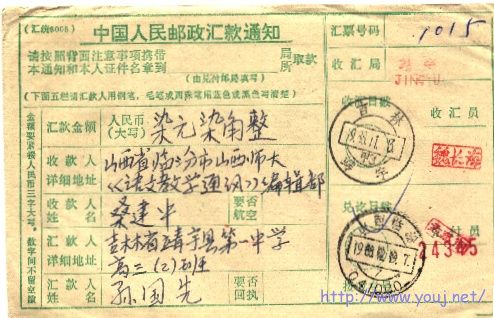 (汇统6005)
中国人民邮政汇款通知
汇票号码
1015
请按照背面注意事项携带
本通知和本人证件名章到
局
所
取款
(由兑付邮局填写)
收汇局
JING
(下面五栏请汇款人用钢笔,毛笔或圆珠笔用蓝色或黑色写清楚)
收汇日戳
收汇员
金额要紧接人民币三字大写。数字间不留空隙
汇款金额
人民币
(大写)
染元染角整
收款人
详细地址
山西省临汾市山西师大
《语文教学通讯》编辑部
收款人
姓名
桑建中
要否
航空
兑讫日戳
兑付员
汇款人
详细地址
吉林省靖宇县第一中学
高三(二)班
24345
汇款人
姓名
孙国先
要否
回执
http://www.youj.net/